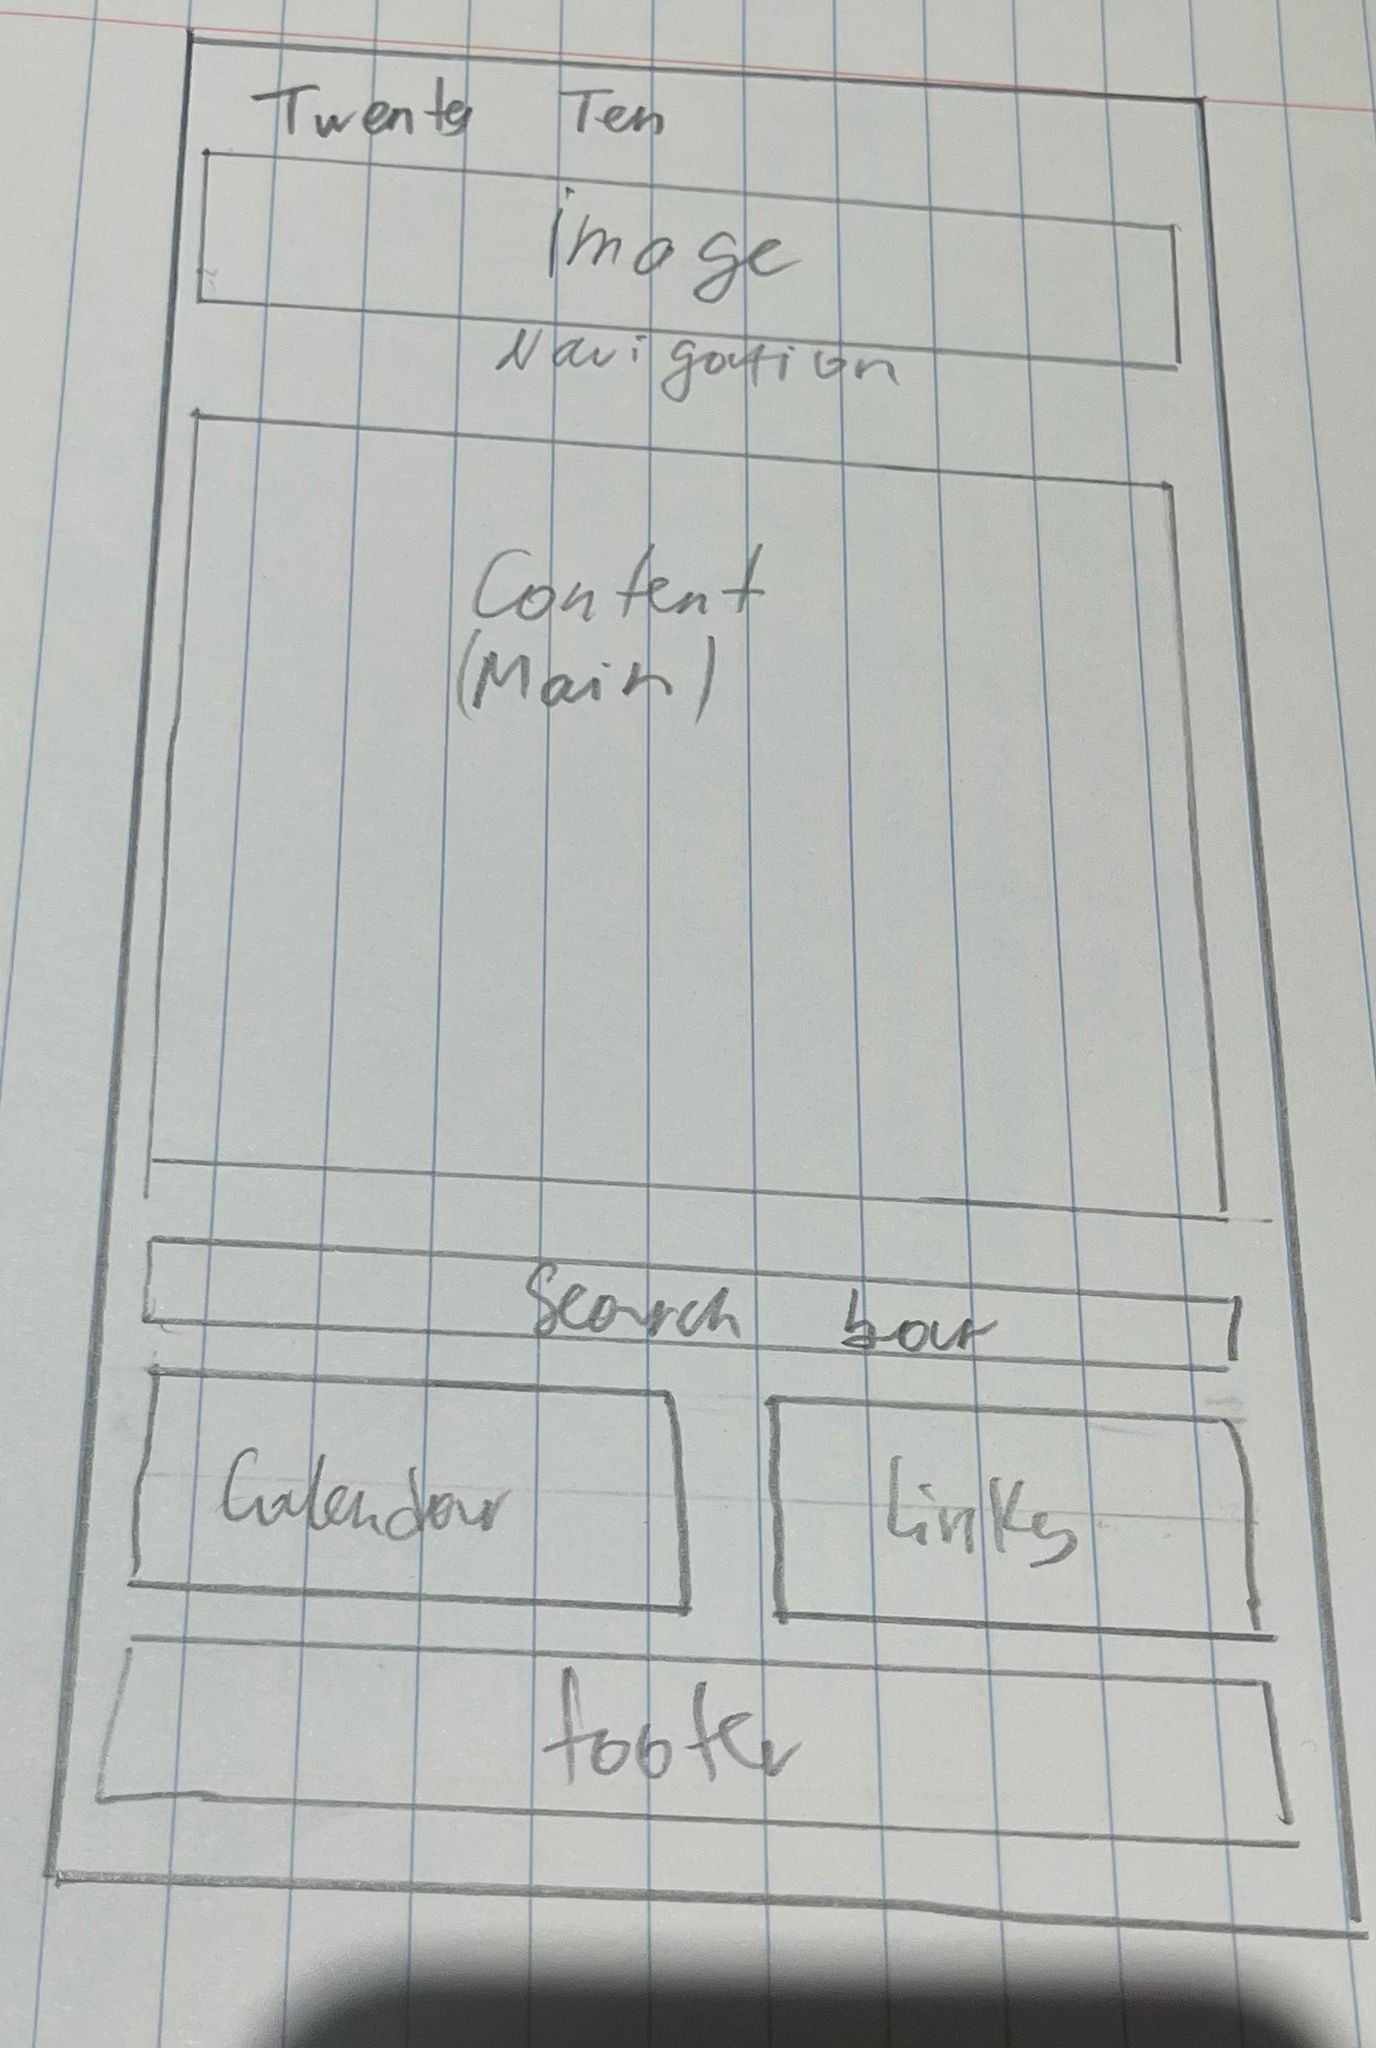 Twenty Ten
image
Navigation
Content
(Main)
Search bar
Calendar
Links
footer